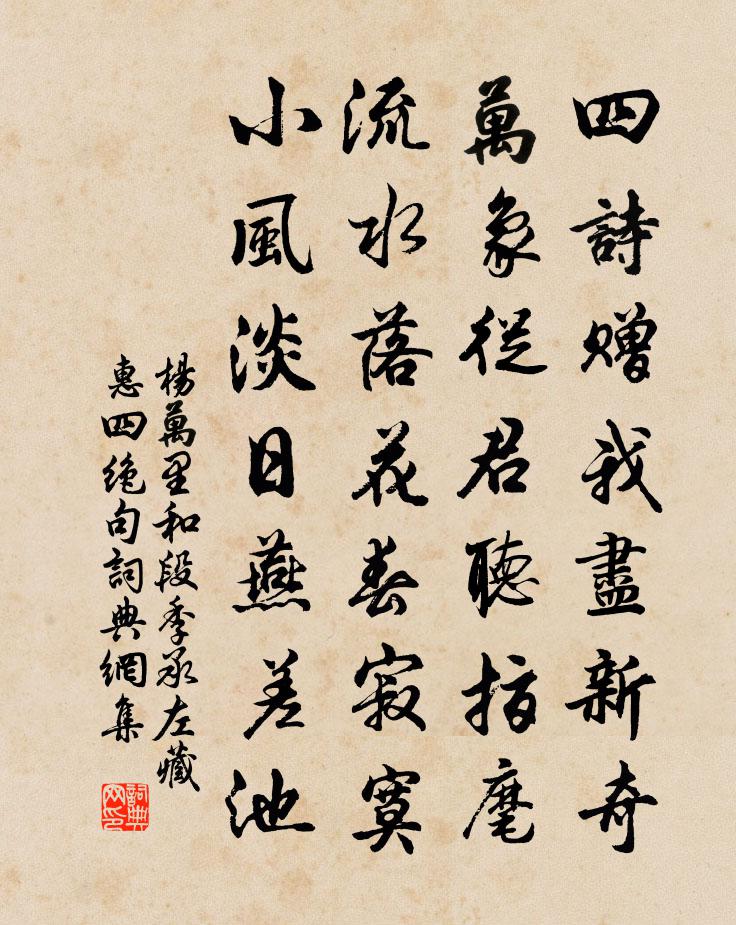 四詩贈我盡新奇
萬象從君聽指麾
流水落花春寂寞
小風淡日燕差池
楊萬里和段季承左藏
惠四絶句詞典網集
詞典网印